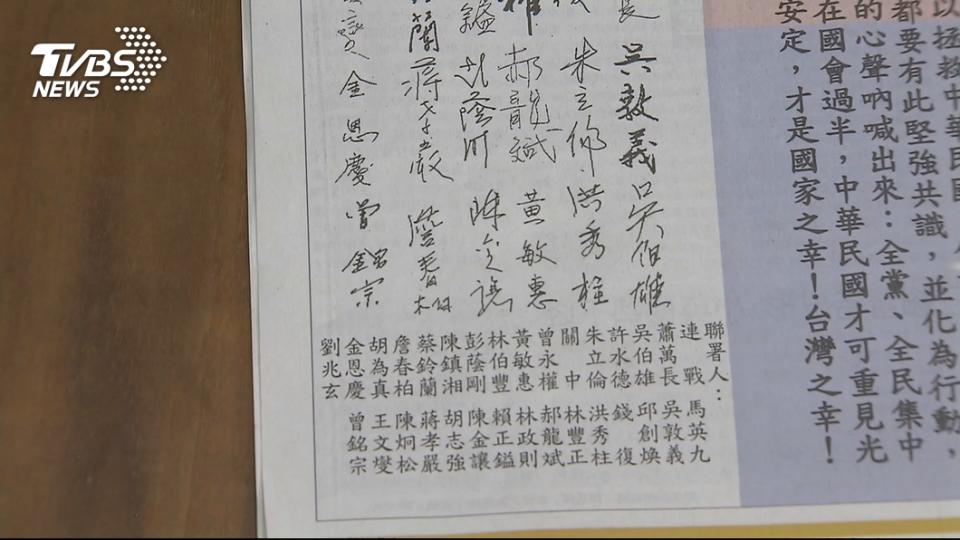 TVBS
NEWS
以拯救中華民國
都要有此堅強共識，並化為行動，
的心聲吶喊出來：全黨、全民集中
在國會過半，中華民國才可重見光
安定，才是國家之幸！台灣之幸！
長 吳敦義 吳伯雄
朱立倫 洪秀柱
權 郝龍斌 黃敏惠
鎰 彭蔭剛 陳金讓
蘭 蔣孝嚴 詹春柏
燮 金恩慶 曾銘宗
聯署人：
連戰 馬英九
蕭萬長 吳敦義
吳伯雄 邱創煥
許水德 錢復
朱立倫 洪秀柱
關中 林豐正
曾永權 郝龍斌
黃敏惠 林政則
林伯豐 賴正鎰
彭蔭剛 陳金讓
陳鎮湘 胡志強
蔡鈴蘭 蔣孝嚴
詹春柏 陳炯松
胡為真 王文燮
金恩慶 曾銘宗
劉兆玄